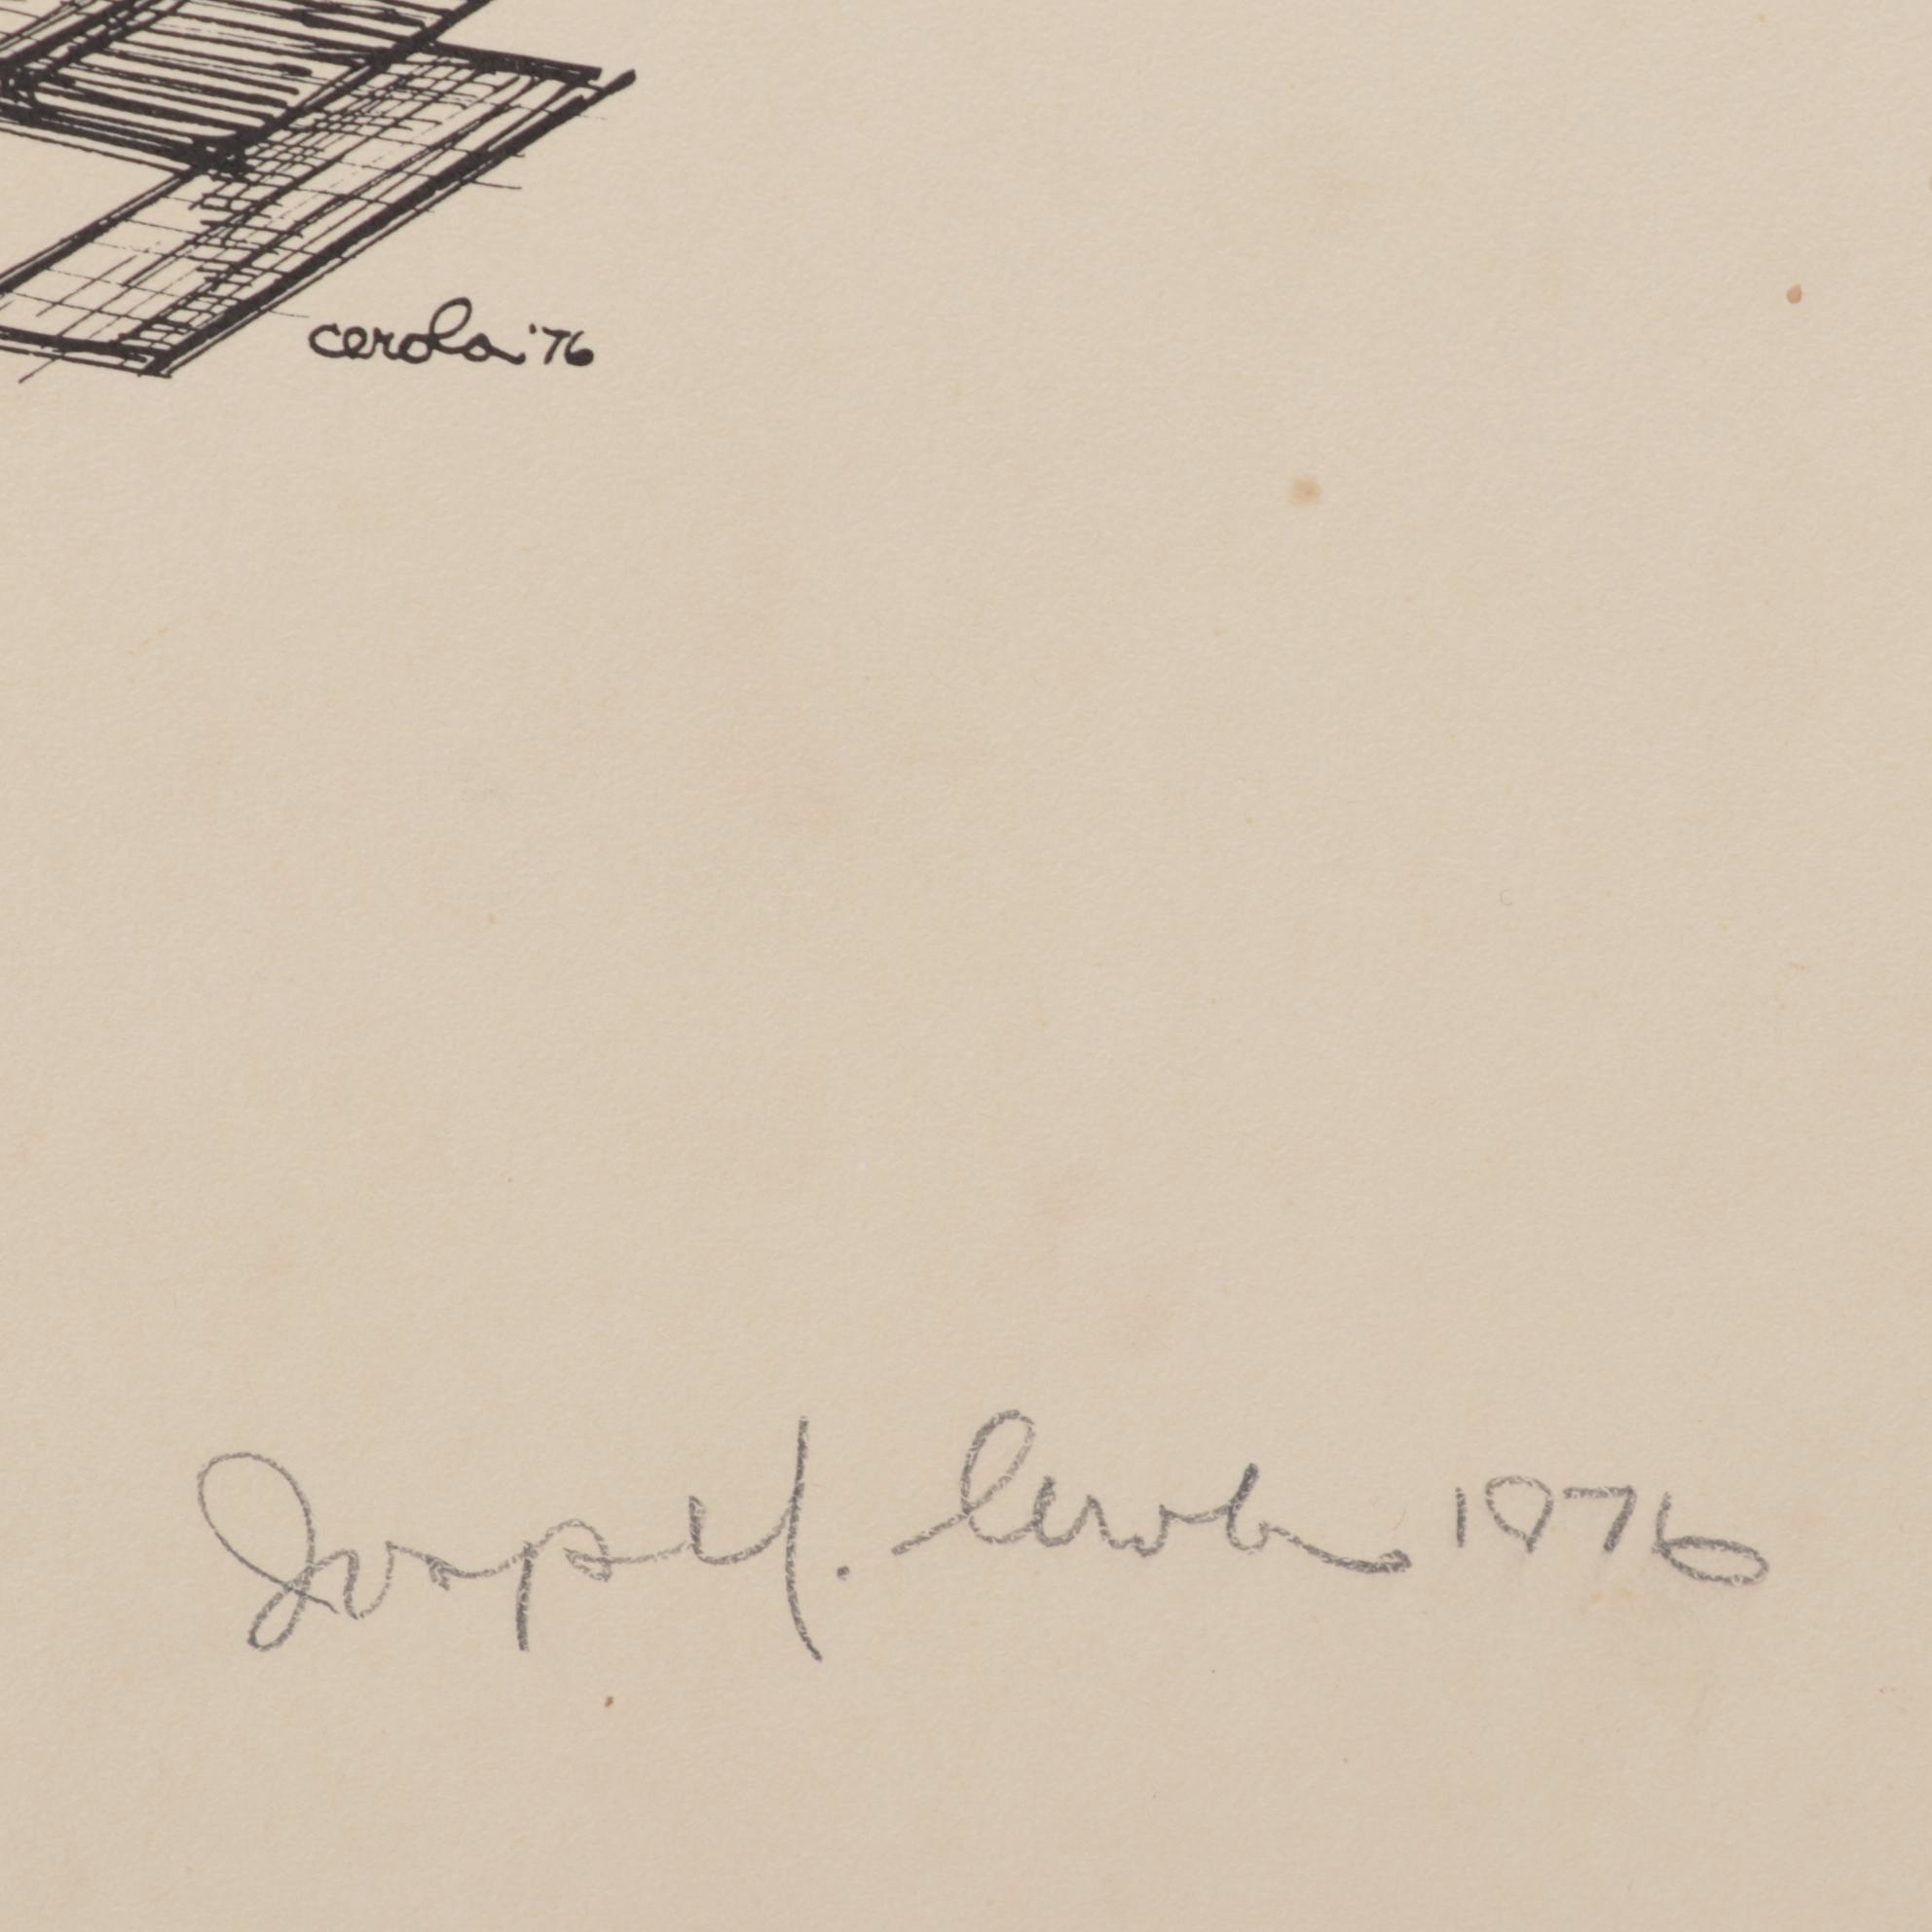 cerola '76
Joseph. Cerola 1976